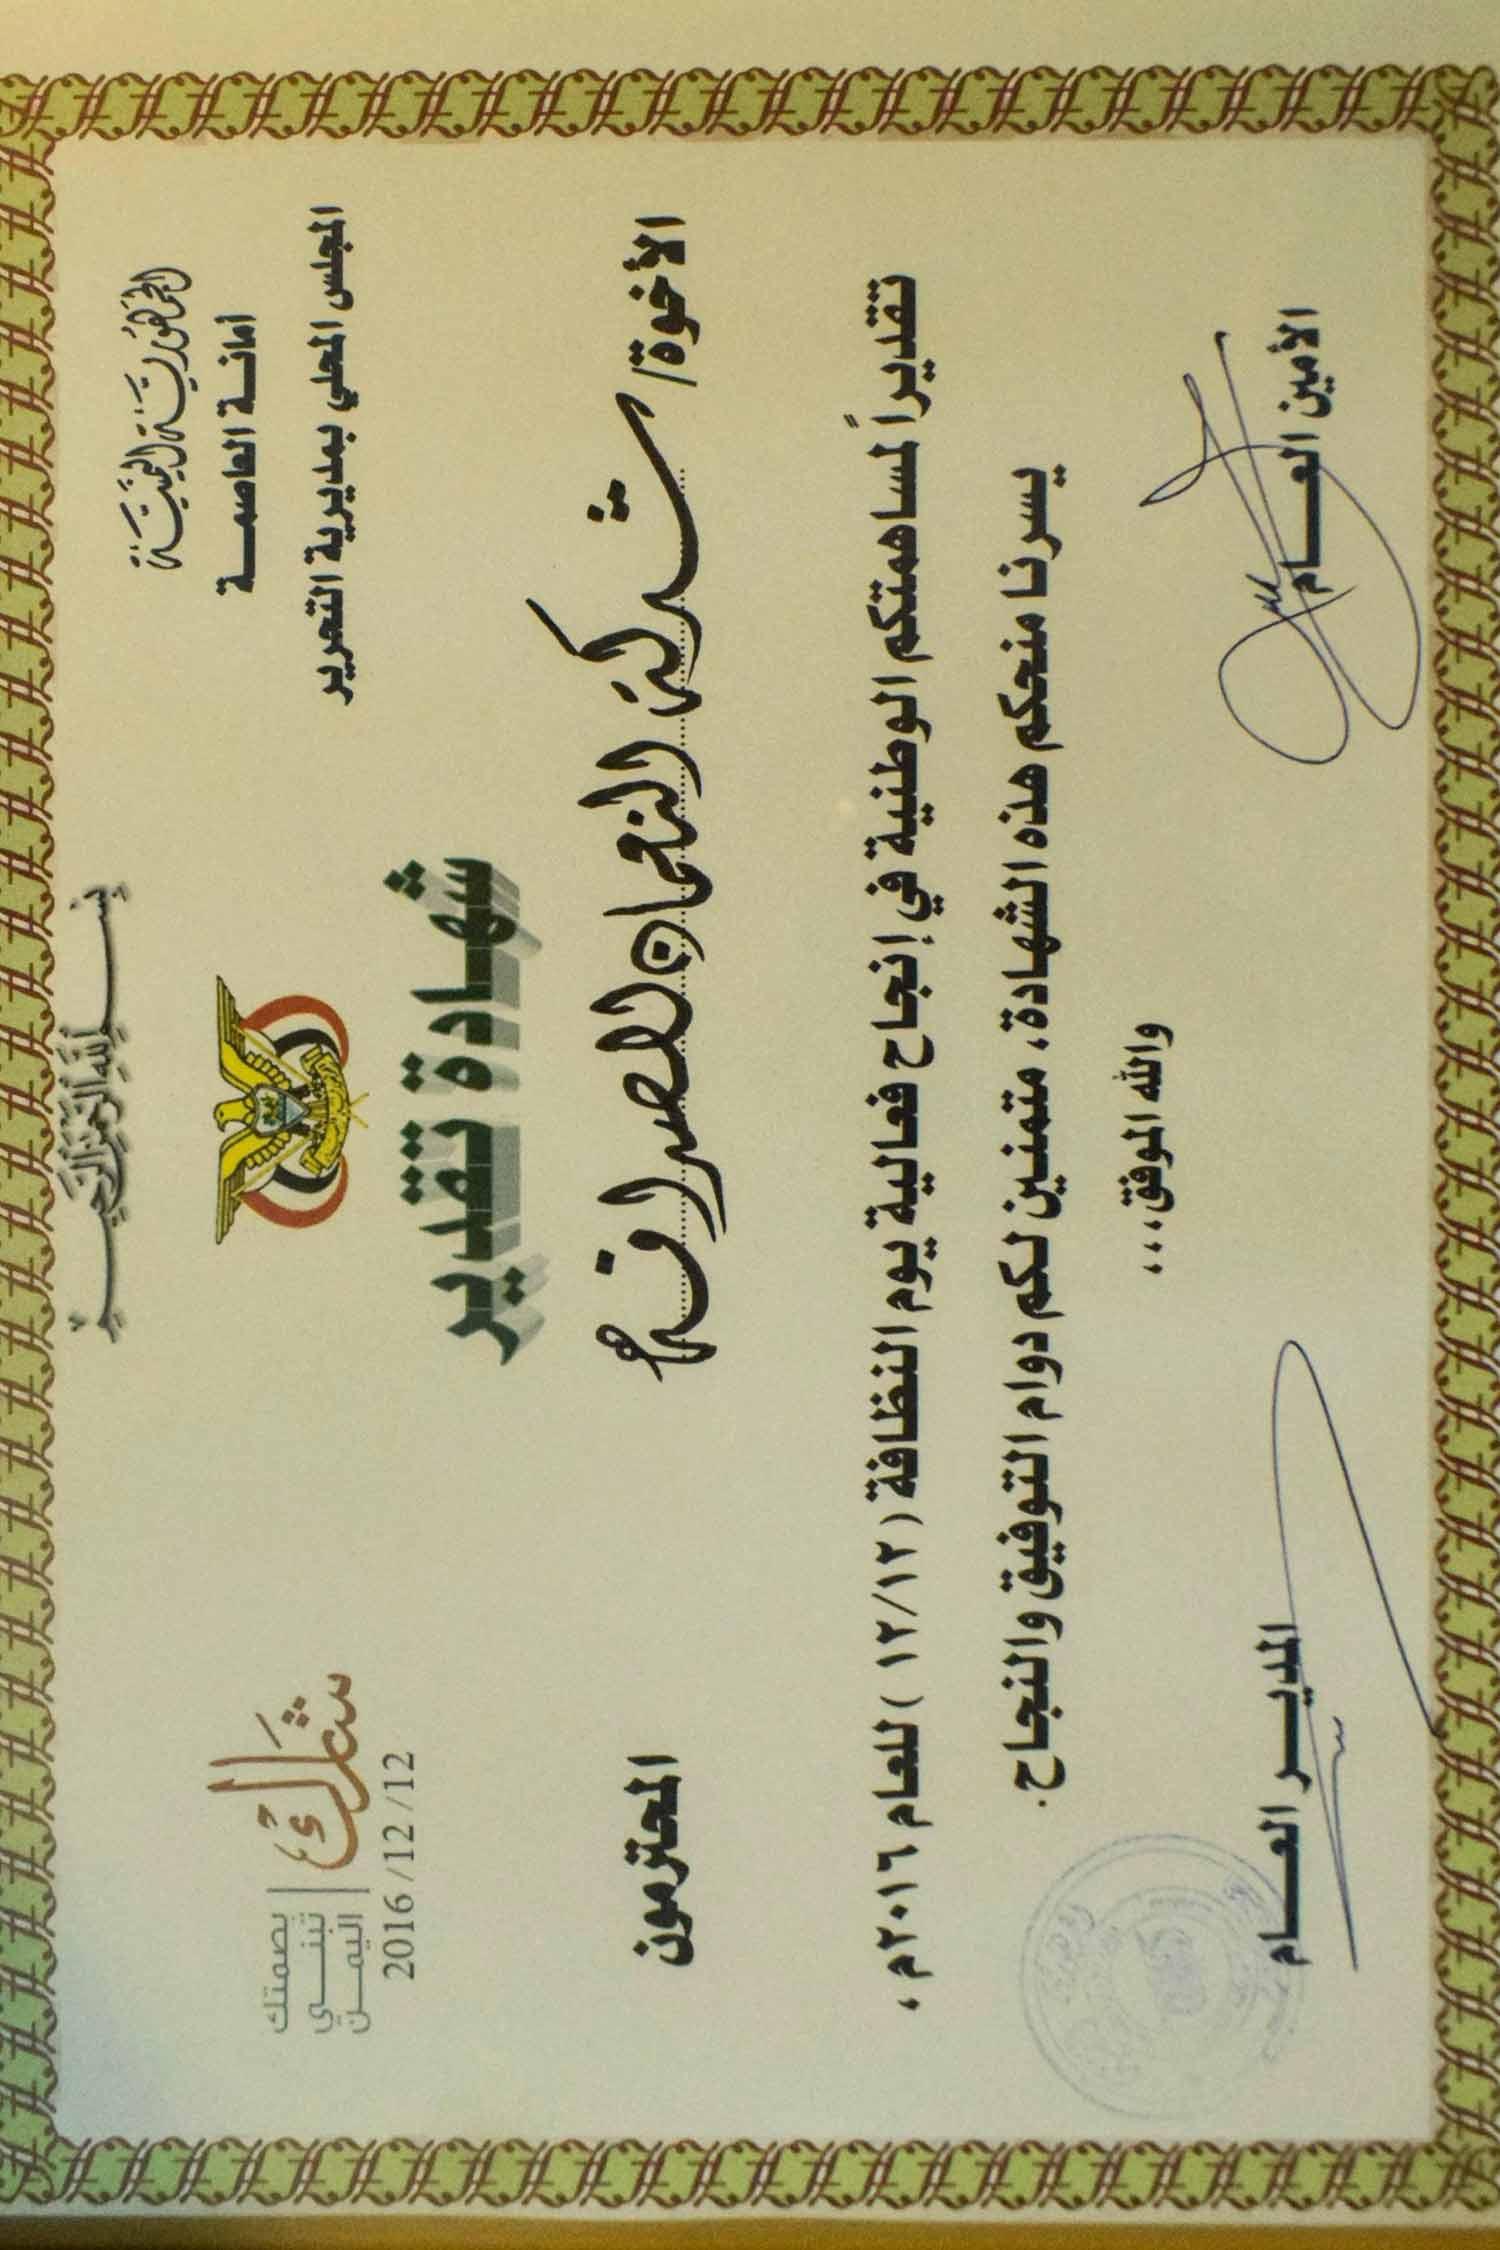 بسم الله الرحمن الرحيم
الجمهورية اليمنية
أمانـة العاصمـة
المجلس المحلي بمديرية التحرير
شارك
بصمتك
تبنـي
اليمـن
2016 /12 /12
شهادة تقدير
الأخوة/ شركة النعمان للصرافة المحترمون
تقديراً لمساهمتكم الوطنية في إنجاح فعالية يوم النظافة (١٢/١٢) للعام ٢٠١٦م ،
يسرنا منحكم هذه الشهادة، متمنين لكم دوام التوفيق والنجاح.
والله الموفق،،،
الأمين العـام
المديـر العـام